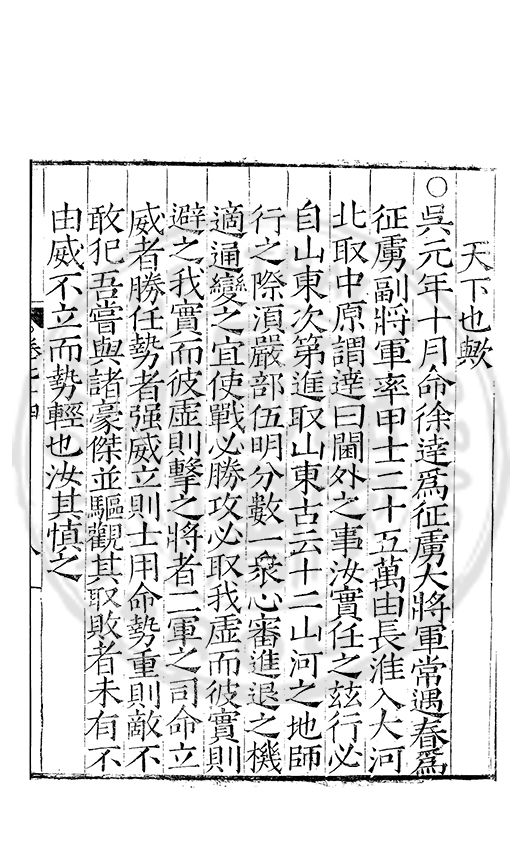 天下也歟
○吳元年十月命徐達爲征虜大將軍常遇春爲
征虜副將軍率甲士二十五萬由長淮入大河
北取中原謂達曰閫外之事汝實任之玆行必
自山東次第進取山東古云十二山河之地師
行之際湏嚴部伍明分數一衆心審進退之機
適通變之宜使戰必勝攻必取我虛而彼實則
避之我實而彼虛則擊之將者三軍之司命立
威者勝任勢者强威立則士用命勢重則敵不
敢犯吾嘗與諸豪傑並驅觀其取敗者未有不
由威不立而勢輕也汝其慎之